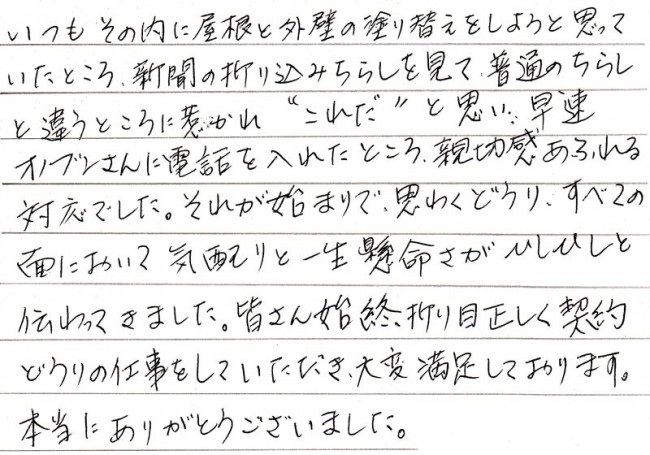 いつもその内に屋根と外壁の塗り替えをしようと思って
いたところ、新聞の折り込みちらしを見て、普通のちらし
と違うところに惹かれ“これだ”と思い、早速
オノブンさんに電話を入れたところ、親切感あふれる
対応でした。それが始まりで、思わくどうり、すべての
面において気配りと一生懸命さがひしひしと
伝わってきました。皆さん始終、折り目正しく契約
どうりの仕事をしていただき、大変満足しております。
本当にありがとうございました。